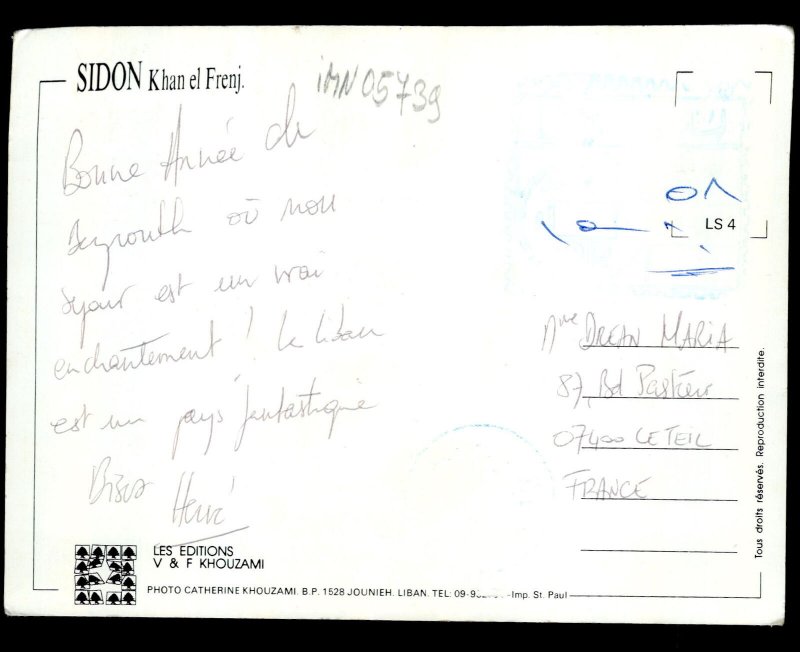 SIDON Khan el Frenj.
iMN05739
Bonne Année de
Beyrouth où mon
séjour est un vrai
enchantement ! Le Liban
est un pays fantastique
Bises
Hervé
LS 4
Mme DREAN MARIA
87, Bd Pasteur
07400 LE TEIL
FRANCE
LES EDITIONS
V & F KHOUZAMI
PHOTO CATHERINE KHOUZAMI. B.P. 1528 JOUNIEH. LIBAN. TEL: 09- -Imp. St. Paul
Tous droits réservés. Reproduction interdite.